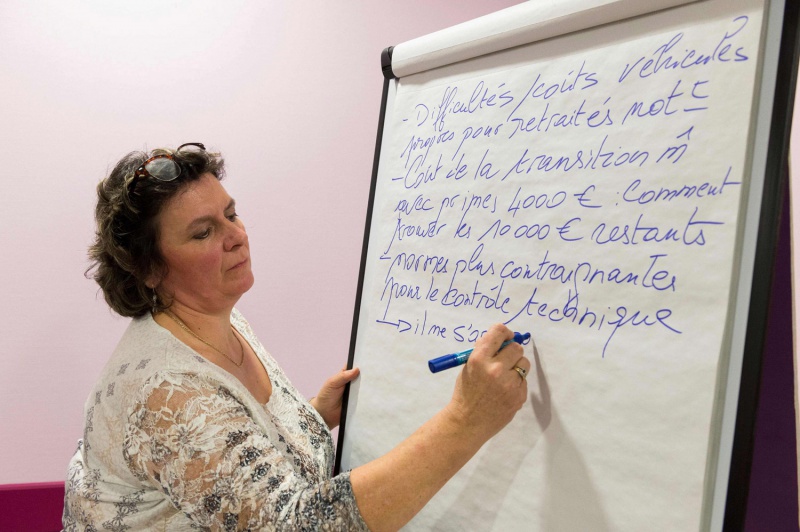 - Difficultés/coûts véhicules
propres pour retraités not
- Coût de la transition m̂
avec primes 4000 € : comment
trouver les 10000 € restants
- normes plus contraignantes
pour le contrôle technique
→ il ne s'a